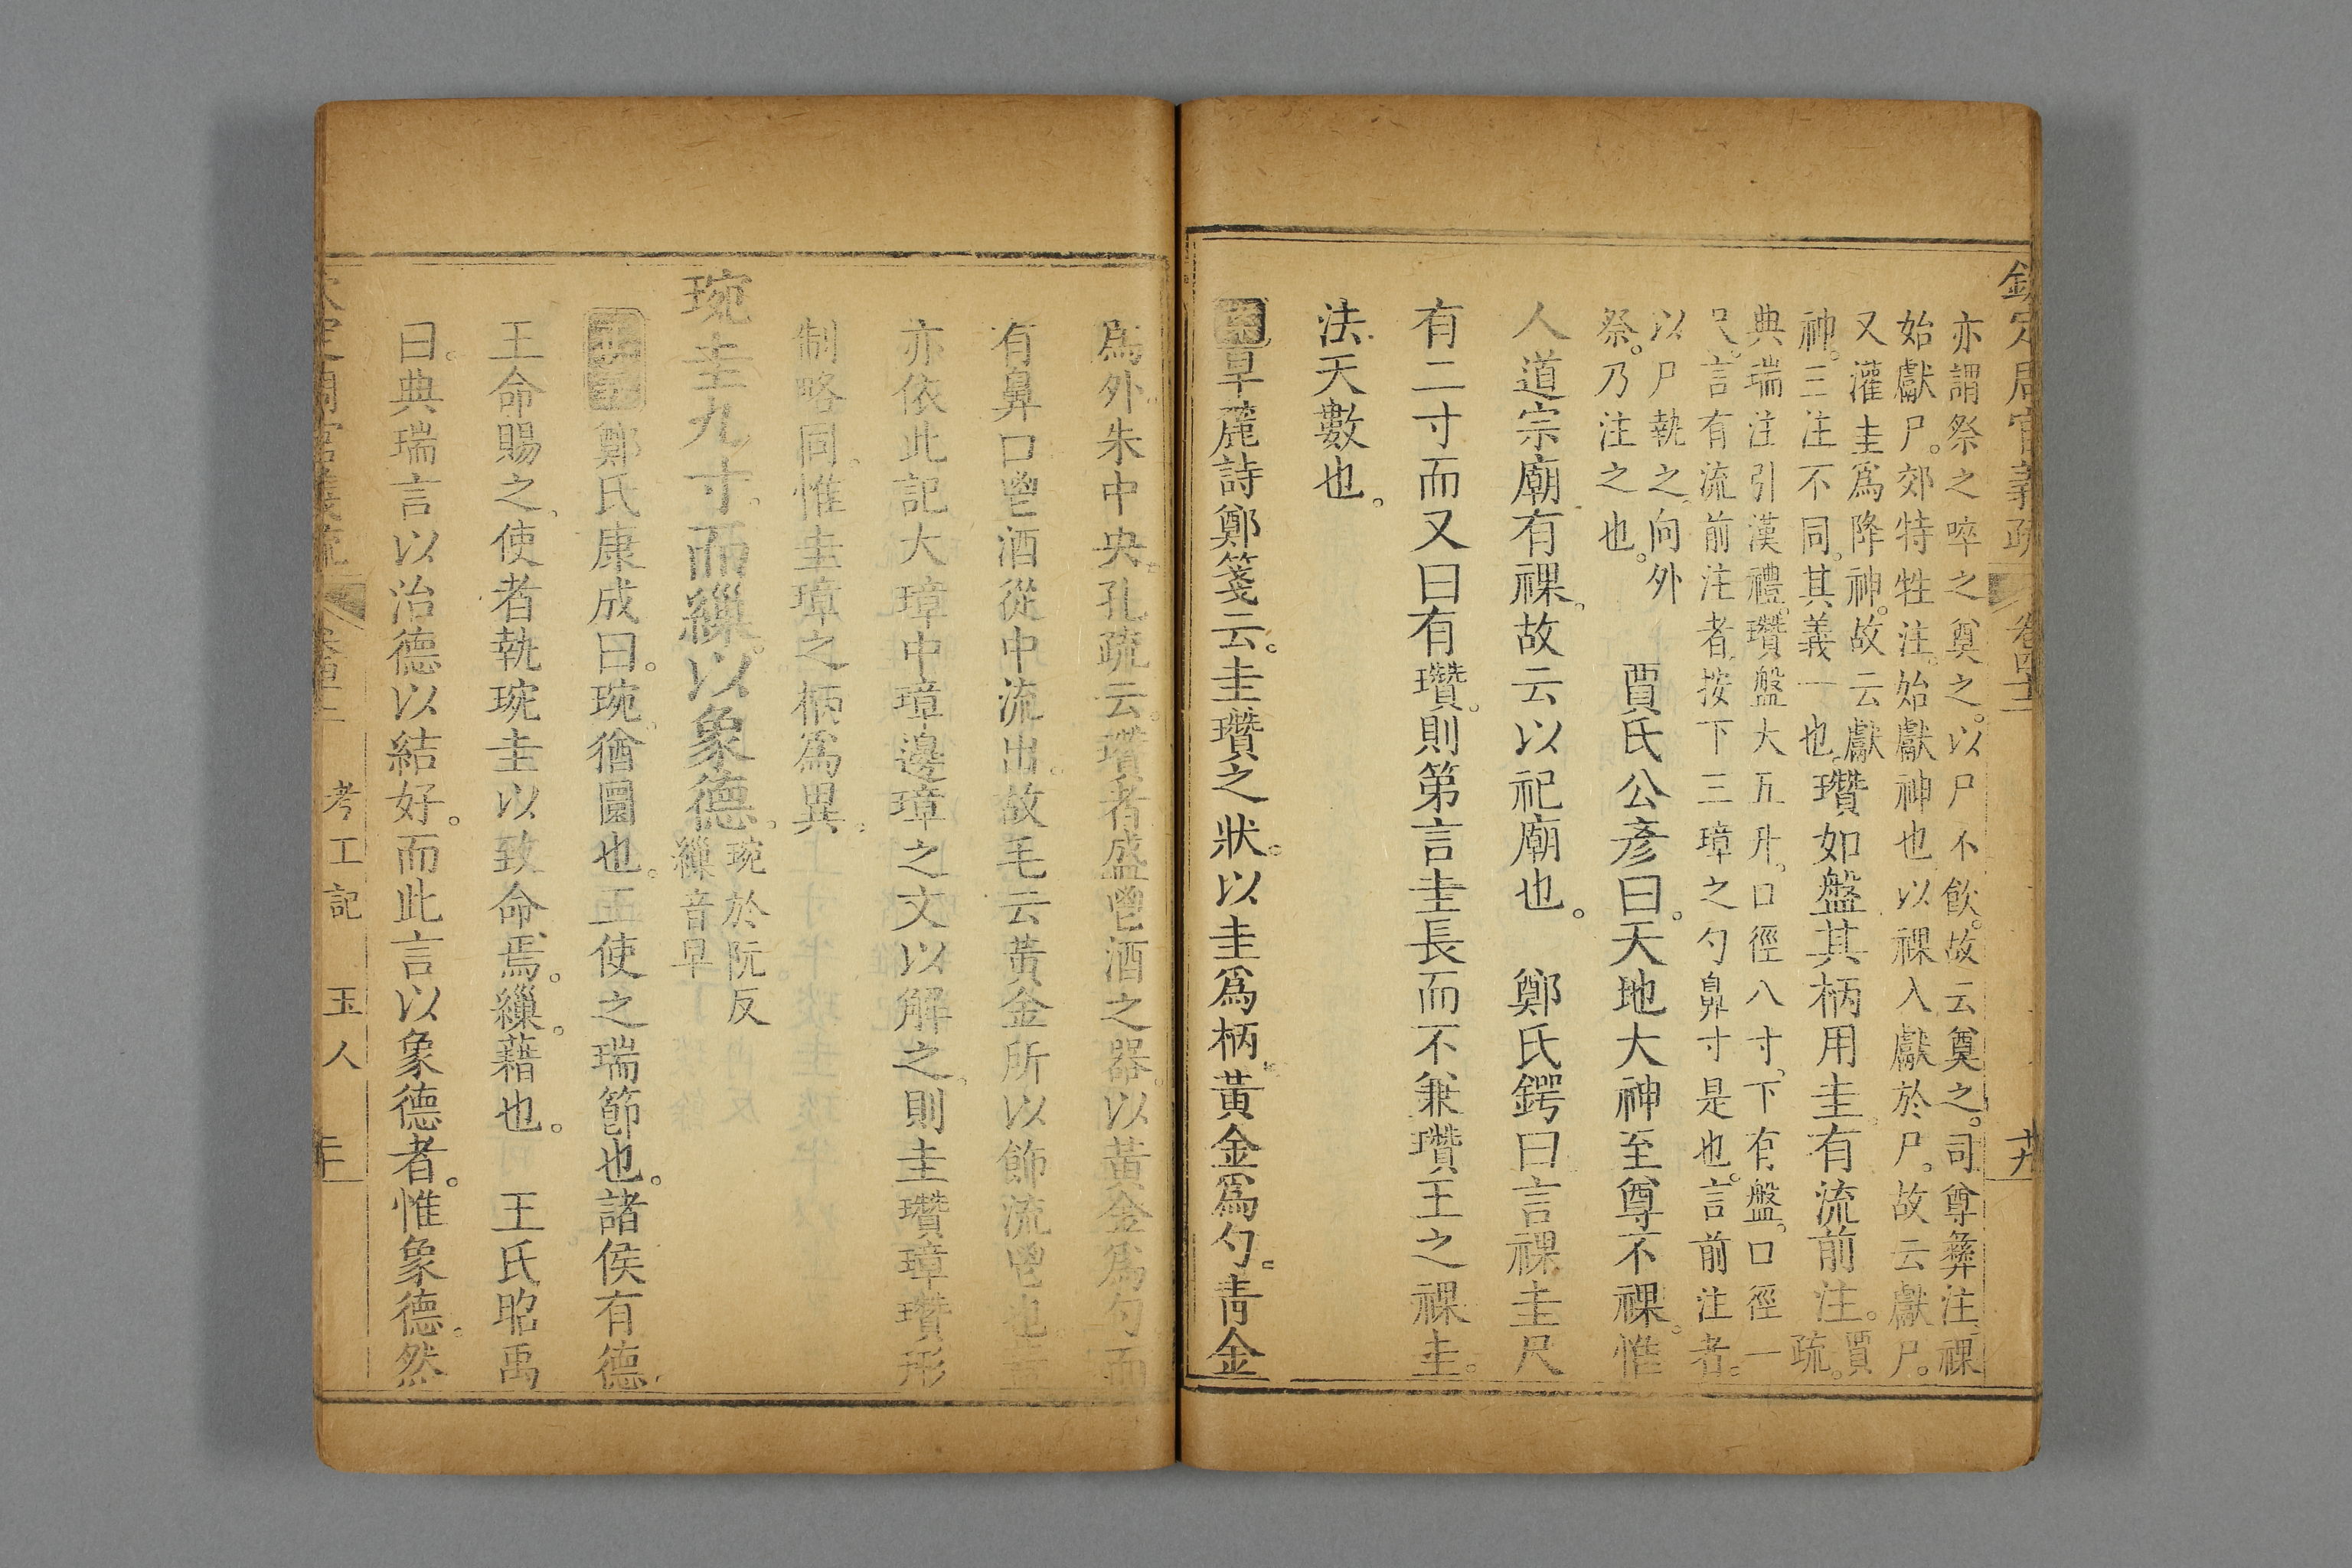 欽定周官義疏 卷四十三 廿
亦謂祭之啐之奠之。以尸不飲。故云奠之。司尊彝注。祼
始獻尸。郊特牲注。始獻神也。以祼入獻於尸。故云獻尸。
又灌圭爲降神。故云獻
神。三注不同。其義一也。瓚如盤其柄用圭。有流前注。賈疏。
典瑞注引漢禮。瓚盤大五升。口徑八寸。下有盤。口徑一
尺。言有流前注者。按下三璋之勺鼻寸是也。言前注者。
以尸執之。向外
祭。乃注之也。 賈氏公彥曰。天地大神至尊不祼。惟
人道宗廟有祼。故云以祀廟也。 鄭氏鍔曰言祼圭尺
有二寸而又曰有瓚。則第言圭長而不兼瓚。王之祼圭。
法天數也。
案旱麓詩鄭箋云。圭瓚之狀。以圭爲柄。黃金爲勺。青金
爲外。朱中央。孔疏云。瓚者盛鬯酒之器。以黃金爲勺而
有鼻口。鬯酒從中流出。故毛云黃金所以飾流鬯也。
亦依此記大璋中璋邊璋之文以解之。則圭瓚璋瓚形
制略同。惟圭璋之柄爲異。
琬圭九寸。而繅。以象德。琬於阮反
繅音早
鄭氏康成曰。琬。猶圜也。王使之瑞節也。諸侯有德。
王命賜之。使者執琬圭以致命焉。繅。藉也。 王氏昭禹
曰。典瑞言以治德以結好。而此言以象德者。惟象德。然
欽定周官義疏 考工記 玉人